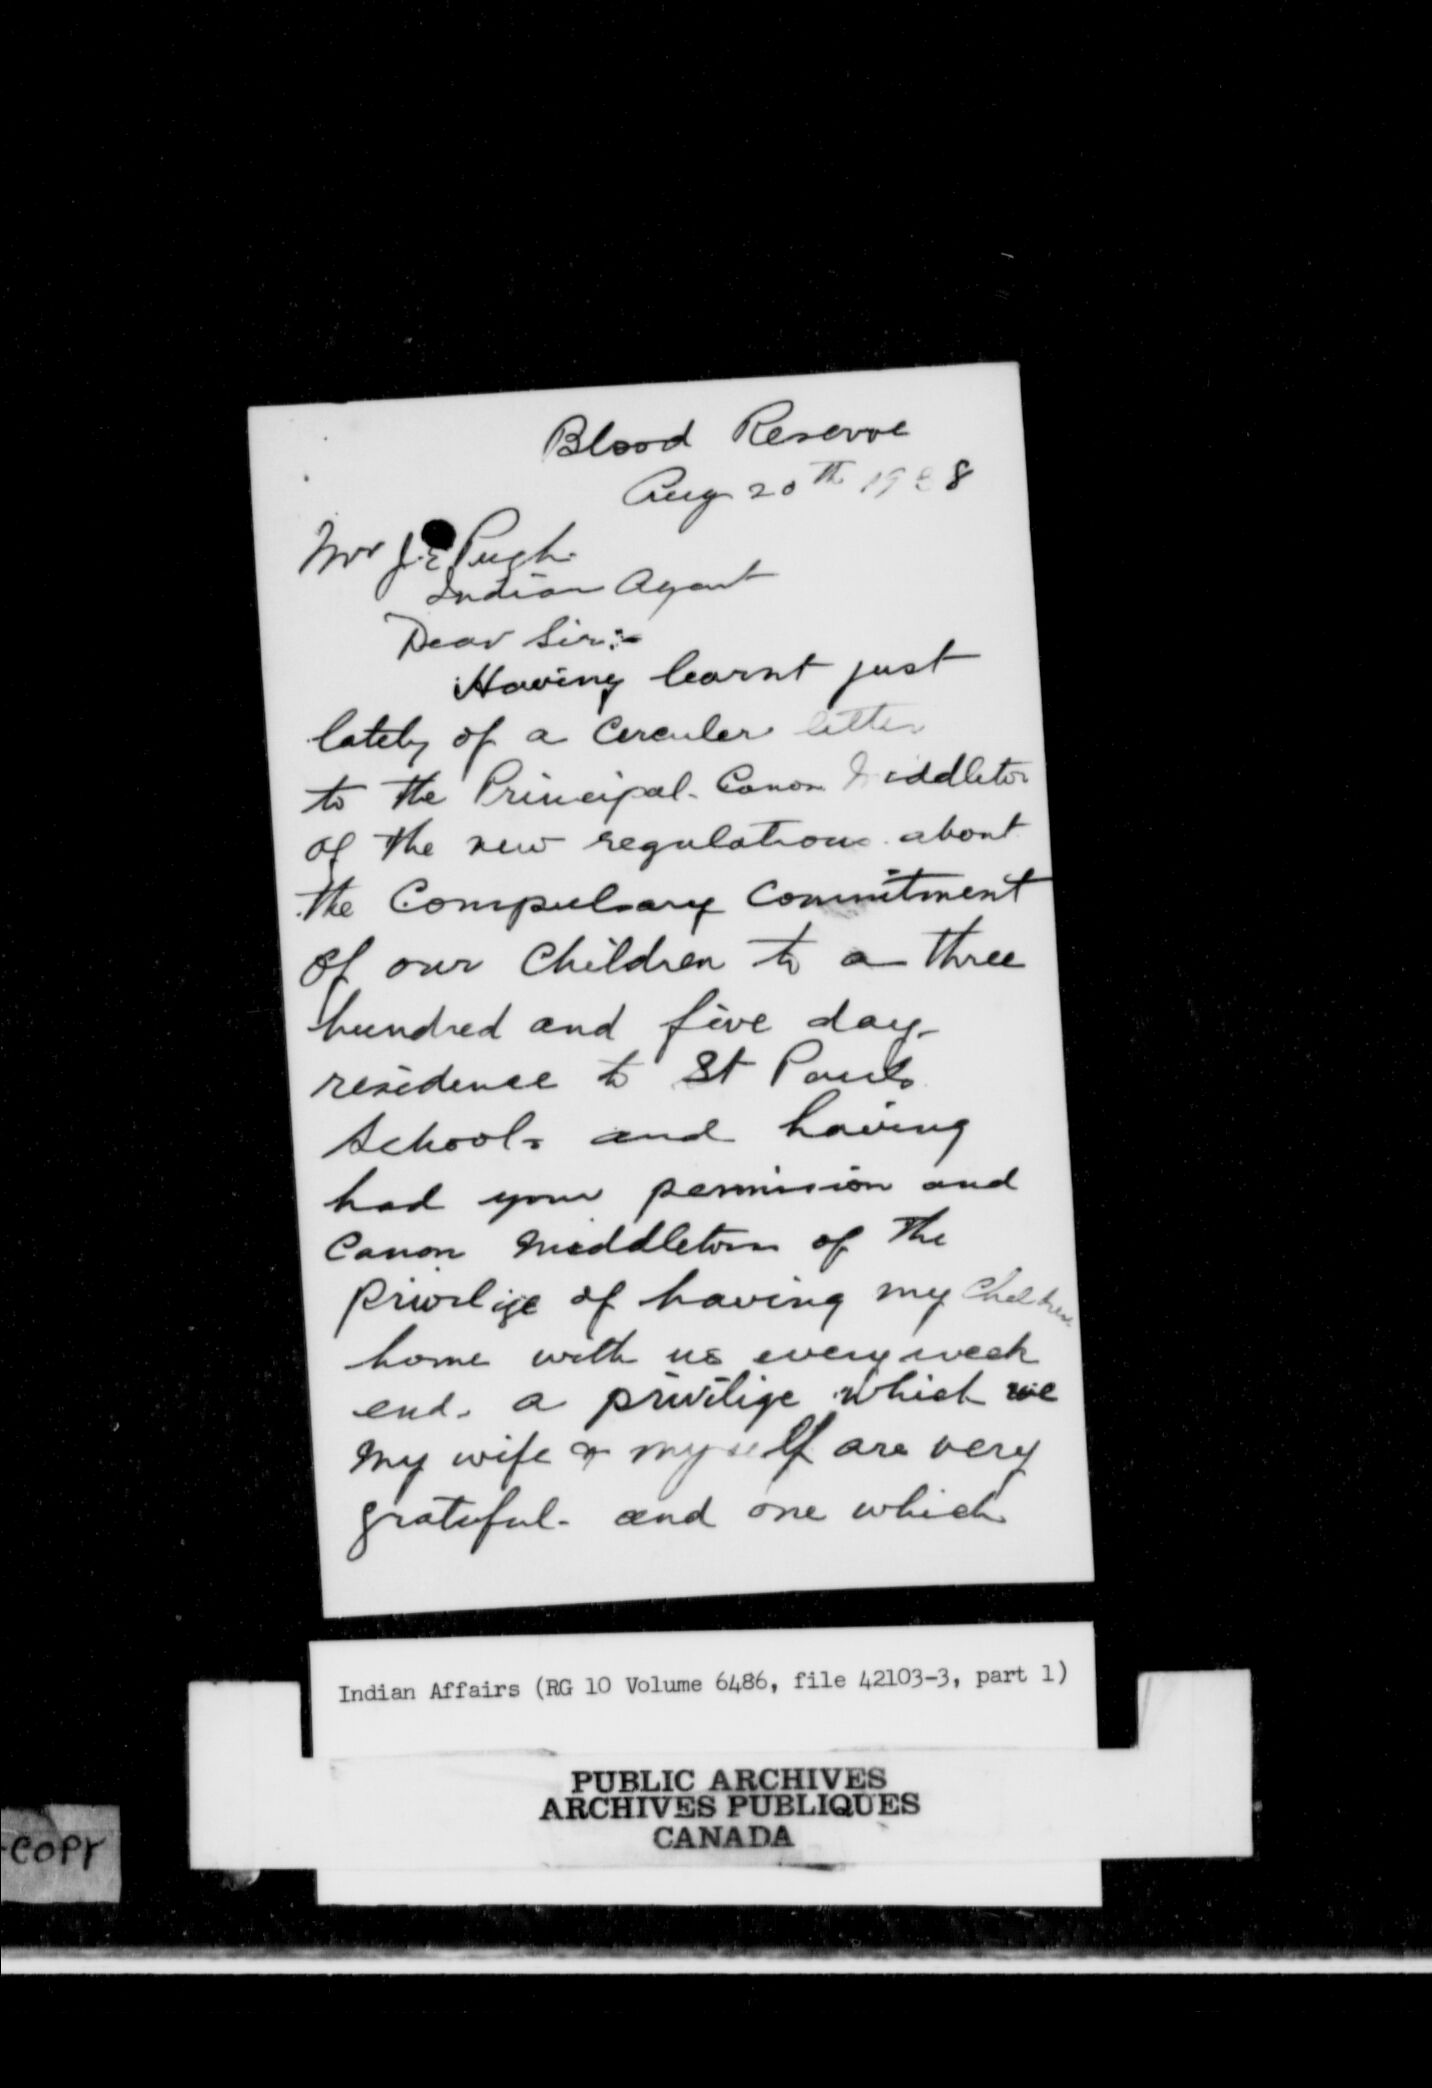 Blood Reserve
Aug 20th 1938
Mr J.E Pugh.
Indian Agent
Dear Sir:-
Having learnt just
lately of a Circuler letter
to the Principal. Canon Middleton
of the new regulations about
the Compulsary Commitment
of our Children to a three
hundred and five day
residence to St Pauls
Schools and having
had your permission and
Canon Middleton of the
privilige of having my Children
home with us every week
end. a privilige which we
my wife & myself are very
grateful. and one which
Indian Affairs (RG 10 Volume 6486, file 42103-3, part 1)
PUBLIC ARCHIVES
ARCHIVES PUBLIQUES
CANADA
-COPY